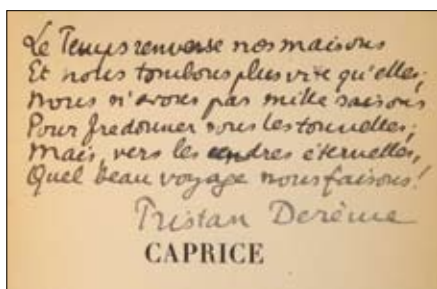 Le Temps renverse nos maisons
Et nous tombons plus vite qu'elles;
Nous n'avons pas mille saisons
Pour fredonner sous les tonnelles;
Mais, vers les cendres éternelles,
Quel beau voyage nous faisons!
Tristan Derème
CAPRICE